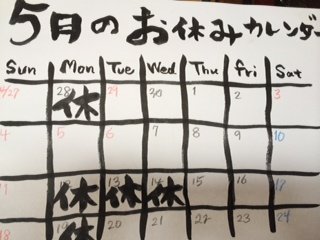 5月のお休みカレンダー
Sun Mon Tue Wed Thu Fri Sat
4/27 28 休 29 30 1 2 3
4 5 6 7 8 9 10
11 休 13 休 14 休 15 16 17
18 19 休 20 21 22 23 24